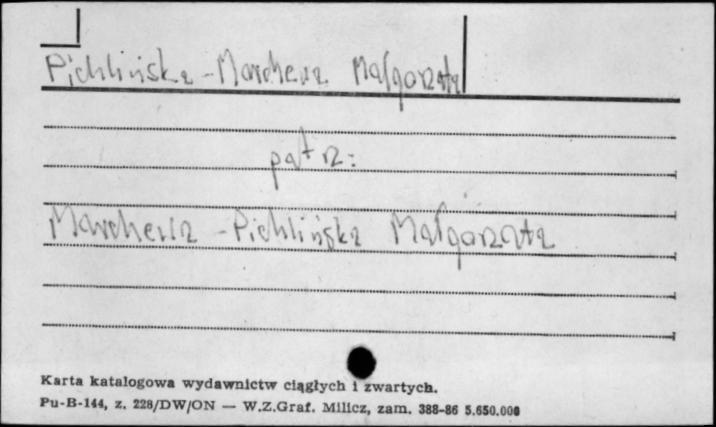 Pichlińska-Marchewa Małgorzata
patrz:
Marchewa-Pichlińska Małgorzata
Karta katalogowa wydawnictw ciągłych i zwartych.
Pu-B-144, z. 228/DW/ON — W.Z.Graf. Milicz, zam. 388-86 5.650.000